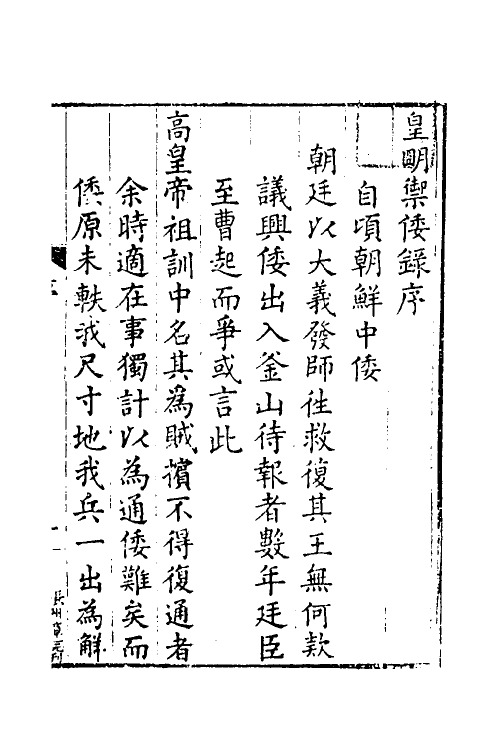 皇明禦倭錄序
自頃朝鮮中倭
朝廷以大義發師往救復其王無何款
議興倭出入釜山待報者數年廷臣
至曹起而爭或言此
高皇帝祖訓中名其為賊擯不得復通者
余時適在事獨計以為通倭難矣而
倭原未軼我尺寸地我兵一出為解